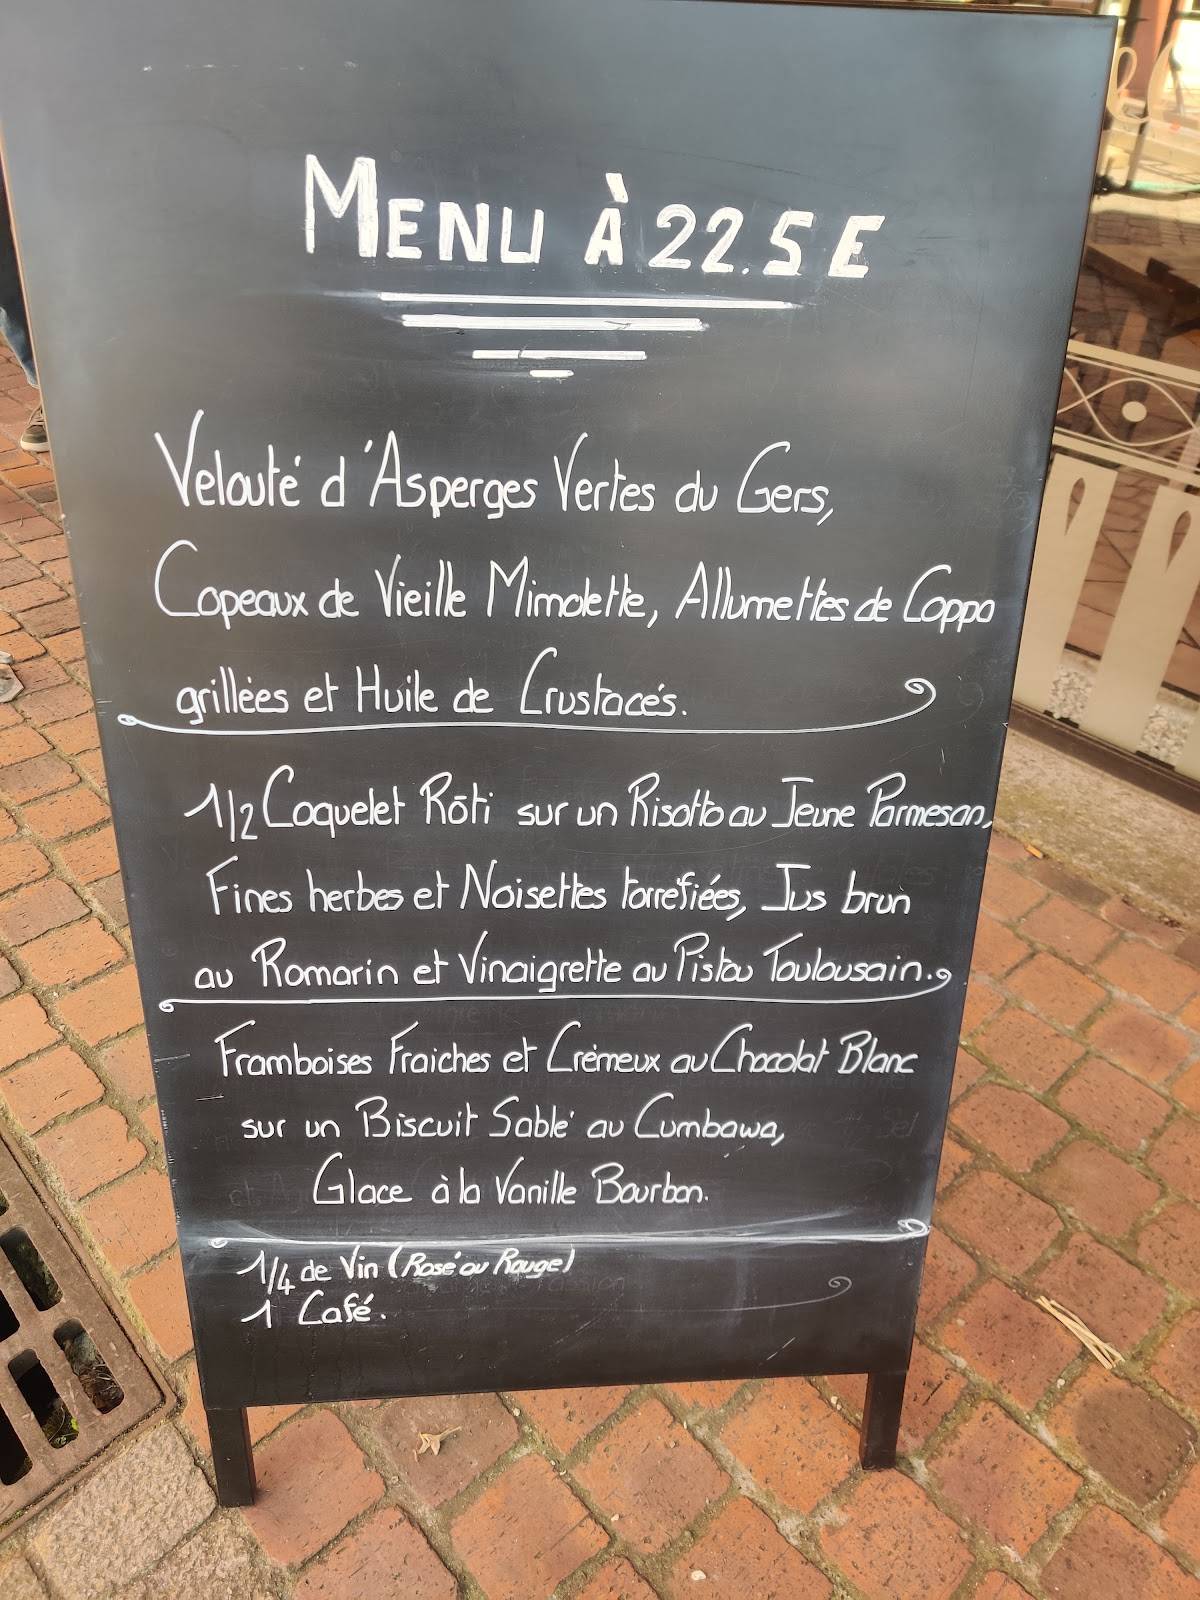 MENU À 22.5 E
Velouté d'Asperges Vertes du Gers,
Copeaux de Vieille Mimolette, Allumettes de Coppa
grillées et Huile de Crustacés.
1/2 Coquelet Rôti sur un Risotto au Jeune Parmesan,
Fines herbes et Noisettes torréfiées, Jus brun
au Romarin et Vinaigrette au Pistou Toulousain.
Framboises Fraiches et Crémeux au Chocolat Blanc
sur un Biscuit Sablé au Cumbawa,
Glace à la Vanille Bourbon.
1/4 de Vin (Rosé ou Rouge)
1 Café.